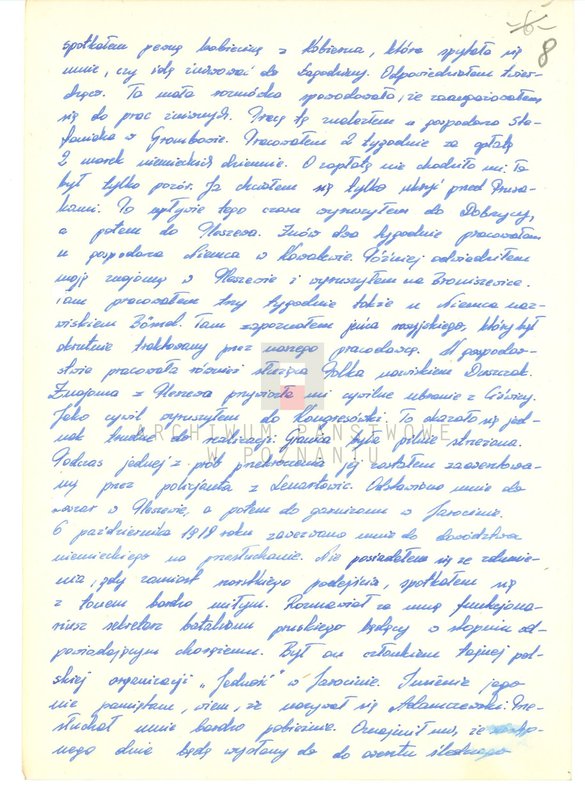 -6-
8
spotkałem pewną kobiecinę z Kobierna, która spytała się
mnie, czy idę żniwować do Łagodziny. Odpowiedziałem twier-
dząco. Ta mała rozmówka spowodowała, że zaangażowałem
się do prac żniwnych. Pracę tę znalazłem u gospodarza Ste-
faniaka w Grombowie. Pracowałem 2 tygodnie za opłatą
2 marek niemieckich dziennie. O zapłatę nie chodziło mi. To
był tylko pozór. Ja chciałem się tylko ukryć przed Prusa-
kami. Po upływie tego czasu wyruszyłem do Dobrzycy,
a potem do Pleszewa. Znów dwa tygodnie pracowałem
u gospodarza Niemca w Kowalewie. Później odwiedziłem
moją znajomą w Pleszewie i wyruszyłem na Broniszewice.
Tam pracowałem trzy tygodnie także u Niemca naz-
wiskiem Tam zapoznałem jeńca rosyjskiego, który był
okrutnie traktowany przez naszego pracodawcę. W gospodar-
stwie pracowała również służąca Polka nazwiskiem Duszczak.
Znajoma z Pleszewa przywiozła mi cywilne ubranie z
Jako cywil wyruszyłem do Kongresówki. To okazało się jed-
nak trudne do realizacji. Granica była pilnie strzeżona.
Podczas jednej z prób przekroczenia jej zostałem zaaresztowa-
ny przez policjanta z Lenartowic. Odstawiono mnie do
koszar w Pleszewie, a potem do garnizonu w Jarocinie.
6 października 1918 roku zawezwano mnie do dowództwa
niemieckiego na przesłuchanie. Nie posiadałem się ze zdumie-
nia, gdy zamiast szorstkiego podejścia, spotkałem się
z tonem bardzo miłym. Rozmawiał ze mną funkcjona-
riusz sekretarz batalionu pruskiego będący w stopniu od-
powiadającym chorążemu. Był on członkiem tajnej pol-
skiej organizacji „Jedność" w Jarocinie. Imienia jego
nie pamiętam, wiem, że nazywał się Adamczewski. Prze-
słuchał mnie bardzo pobieżnie. Oznajmił mi, że
nego dnia będę wysłany do do aresztu śledczego
ARCHIWUM PAŃSTWOWE
W POZNANIU